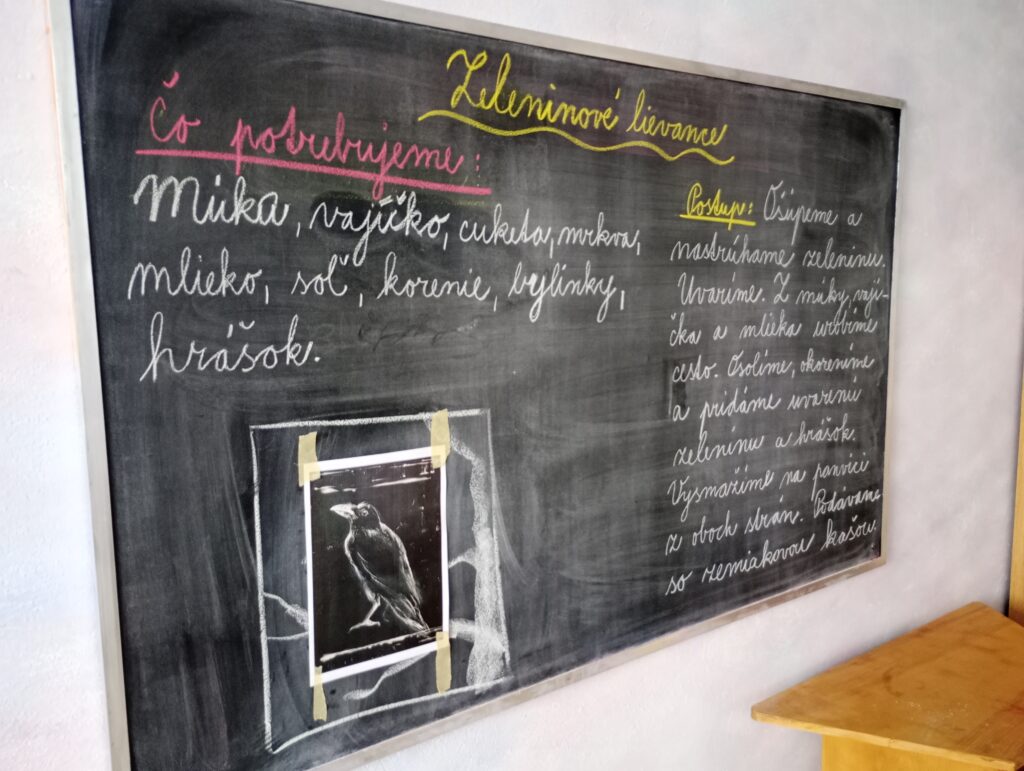 Zeleninové lievance
Čo potrebujeme:
Múka, vajíčko, cuketa, mrkva,
mlieko, soľ, korenie, bylinky,
hrášok.
Postup: Ošúpeme a
nastrúhame zeleninu.
Uvaríme. Z múky, vají-
čka a mlieka urobíme
cesto. Osolíme, okoreníme
a pridáme uvarenú
zeleninu a hrášok.
Vysmažíme na panvici
z oboch strán. Podávame
so zemiakovou kašou.